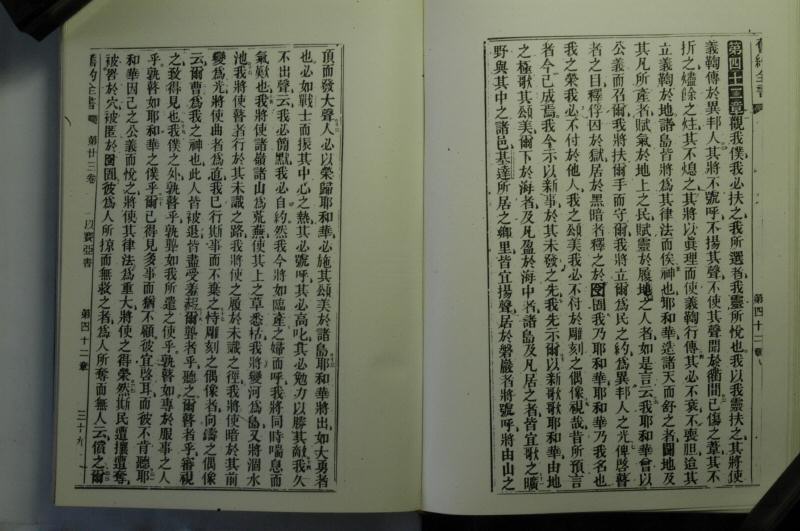 舊約全書
第四十二章
第四十二章觀我僕我必扶之我所選者我靈所悅也我以我靈扶之其將使
義鞫傳於異邦人其將不號呼不揚其聲不使其聲聞於衢間已傷之葦其不
折之燼餘之炷其不熄之其將以眞理而使義鞫行傳其必不衰不喪胆迨其
立義鞫於地諸島皆將爲其律法而俟神也耶和華造諸天而舒之者闢地及
其凡所產者賦氣於地上之民賦靈於履地之人者如是言云我耶和華曾以
公義而召爾我將扶爾手而守爾我將立爾爲民之約爲異邦人之光俾啓瞽
者之目釋俘囚於獄居於黑暗者釋之於囹圄我乃耶和華耶和華乃我名也
我之榮我必不付於他人我之頌美我必不付於雕刻之偶像視哉昔所預言
者今已成焉我今示以新事於其未發之先我先示爾以新歌歌耶和華由地
之極歌其頌美爾下於海者及凡盈於海中者諸島及凡居之者皆宜歌之曠
野與其中之諸邑基達所居之鄉里皆宜揚聲居於磐巖者將號呼將由山之
頂而發大聲人必以榮歸耶和華必施其頌美於諸島耶和華將出如大勇者
也必如戰士而振其中心之熱其必號呼其必高叱其必勉力以勝其敵我久
不出聲云我必簡默我必自約然我今將如臨產之婦而呼我將同時喘息而
氣歎也我將使諸嶺諸山爲荒蕪使其上之草悉枯我將變河爲島又將涸水
池我將使瞽者行於其未識之路我將使之履於未識之徑我將使暗於其前
變爲光將使曲者爲直我已行斯事而不棄之恃雕刻之偶像者向鑄之偶像
云爾曹爲我之神也此人皆被退皆盡受羞赧爾聾者乎聽之爾瞽者乎審視
之致得見也我僕之外孰瞽乎孰聾如我所遣之使乎孰瞽如專於服事之人
乎孰瞽如耶和華之僕乎爾已得見多事而猶不顧彼宜啓耳而彼不肯聽耶
和華因己之公義而悅之將使其律法爲重大將使之得榮然斯民遭攘遭奪
被罟於穴被匿於囹圄彼爲人所掠而無救之者爲人所奪而無人云償之爾
舊約全書
第廿三卷
以賽亞書
第四十二章
三十九